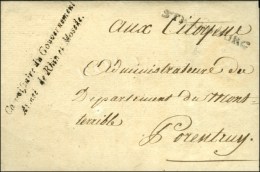 Commissaire du Gouvernement
Armée de Rhin et Moselle.
STRASBOURG
aux Citoyens
Administrateurs du
Departement du Mont
terrible
Porentruy